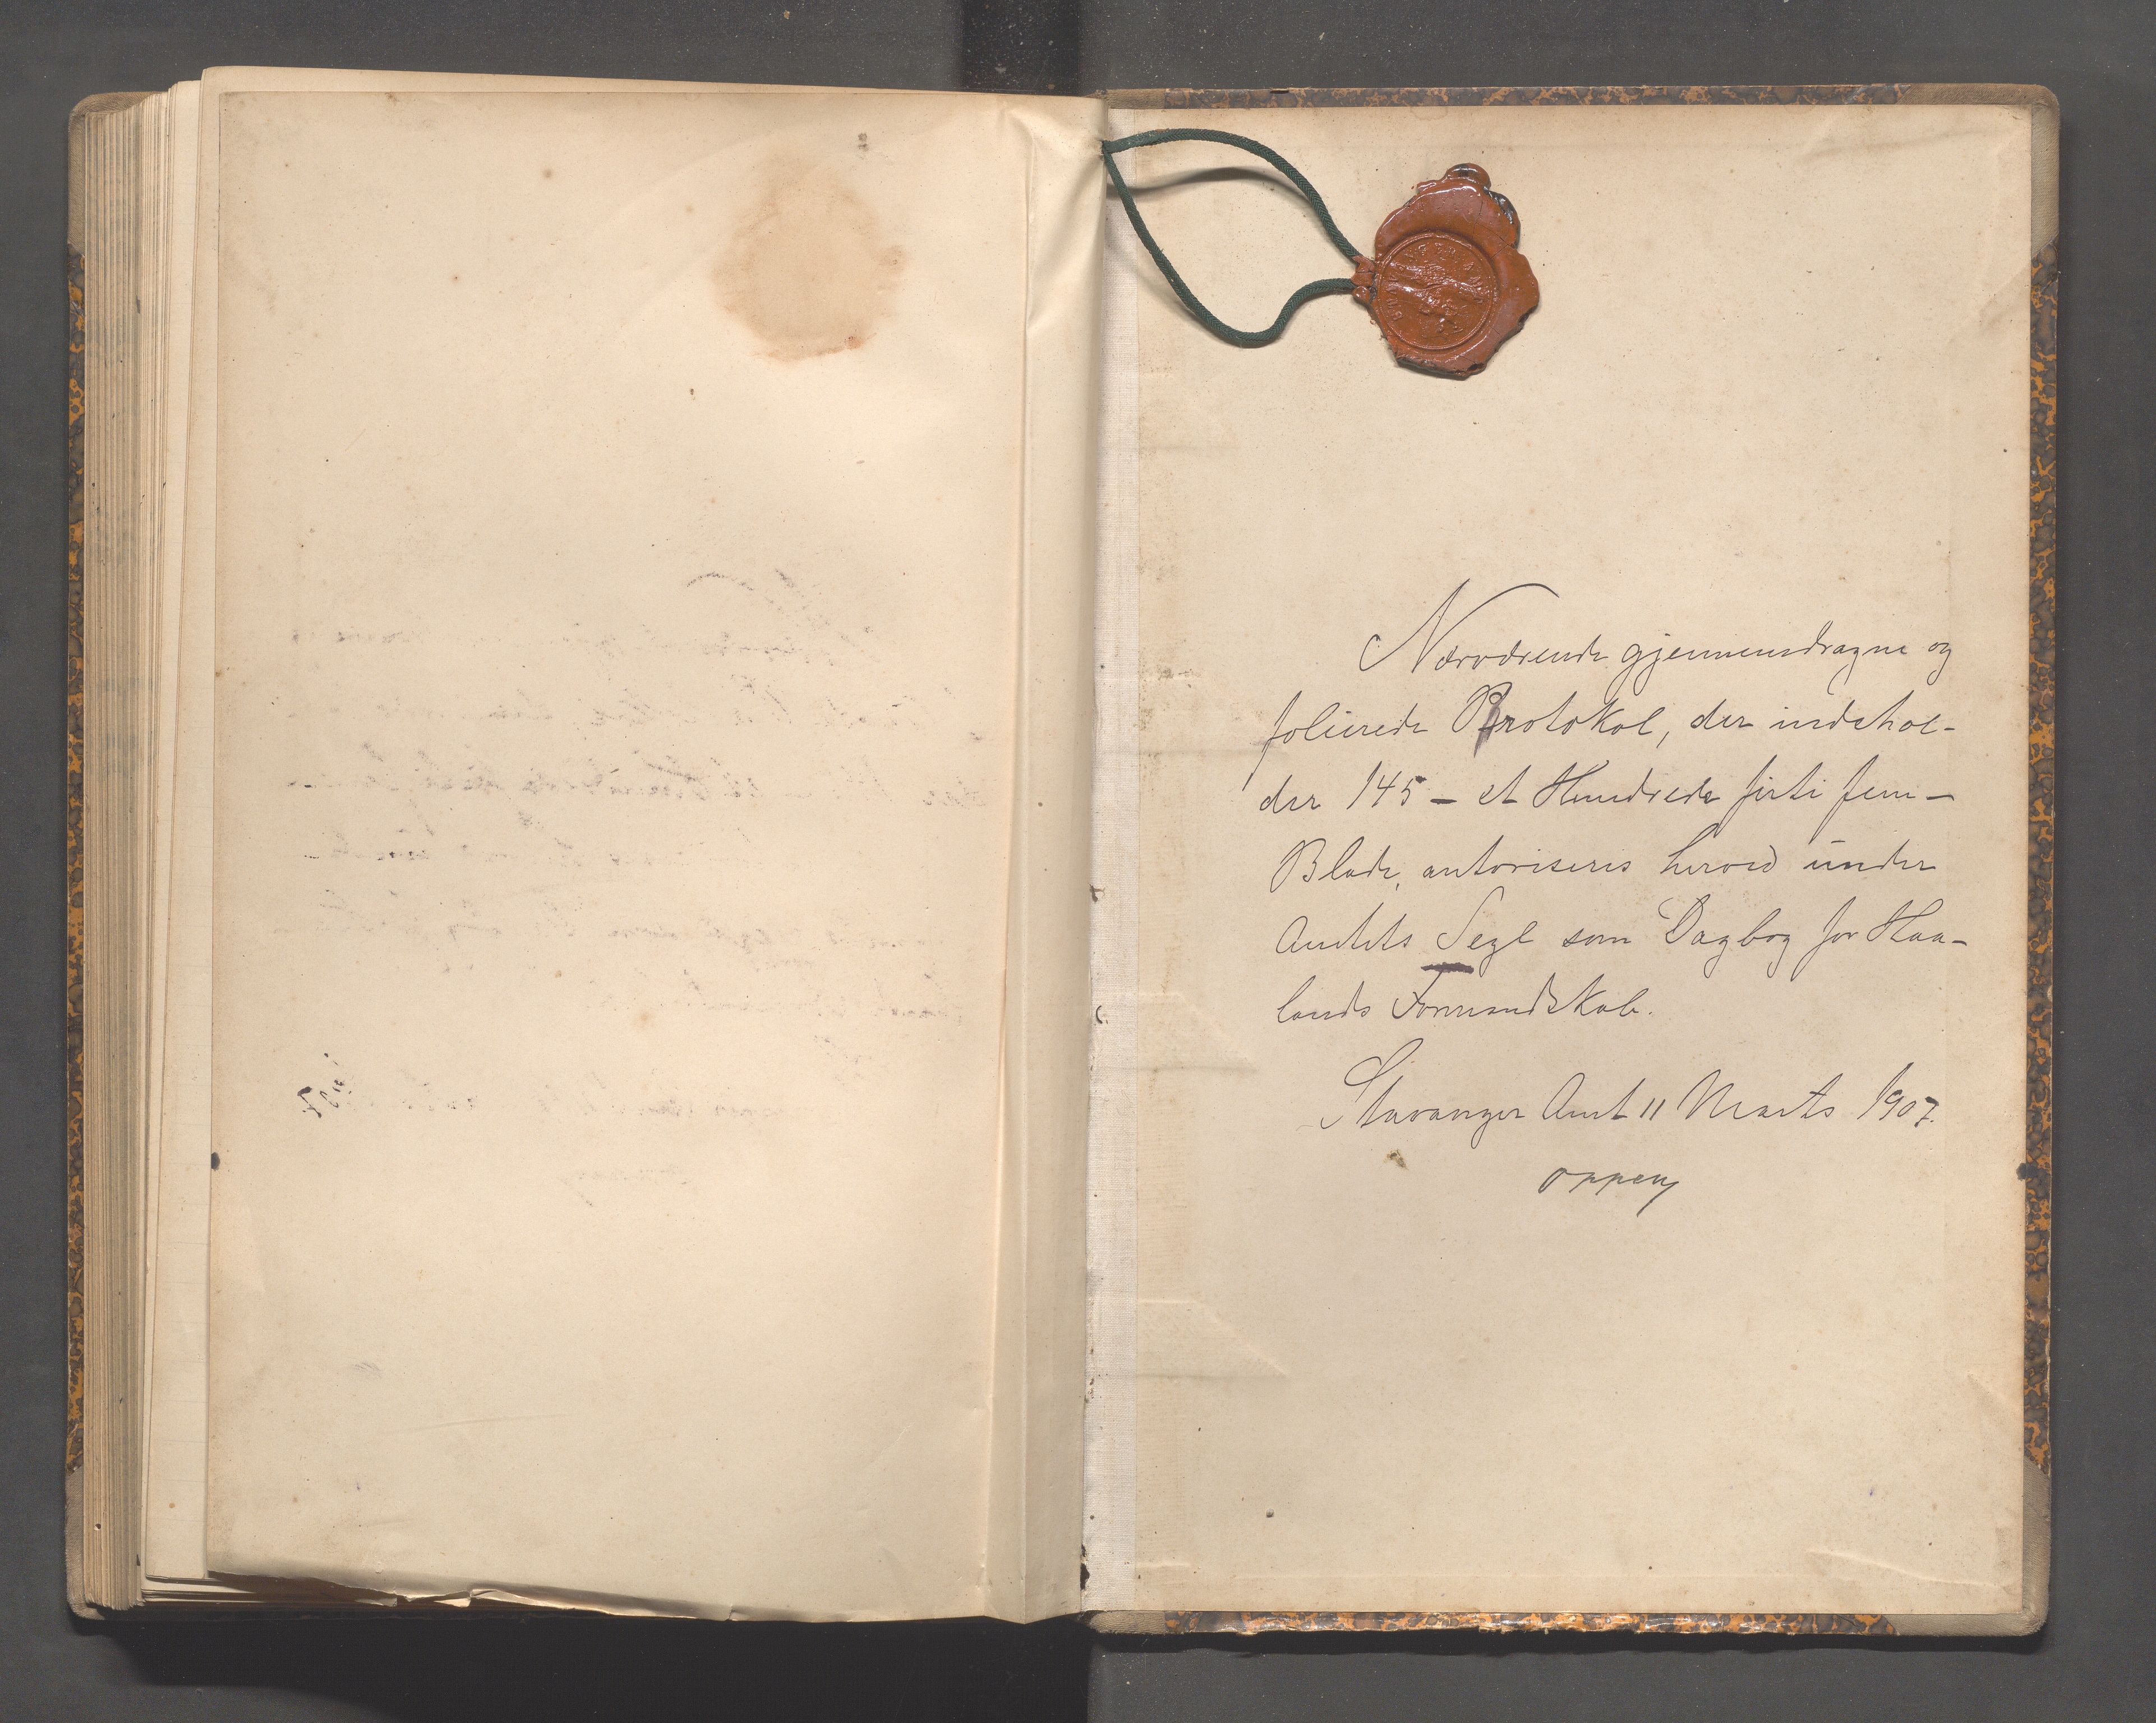 Nærværende gjennemdragne og
folierede Protokol, der indehol-
der 145 – et Hundrede firti fem –
Blade, autoriseres herved under
Amtets Segl som Dagbog for Haa-
lands Formandskab.
Stavanger Amt 11 Marts 1907.
Oppen